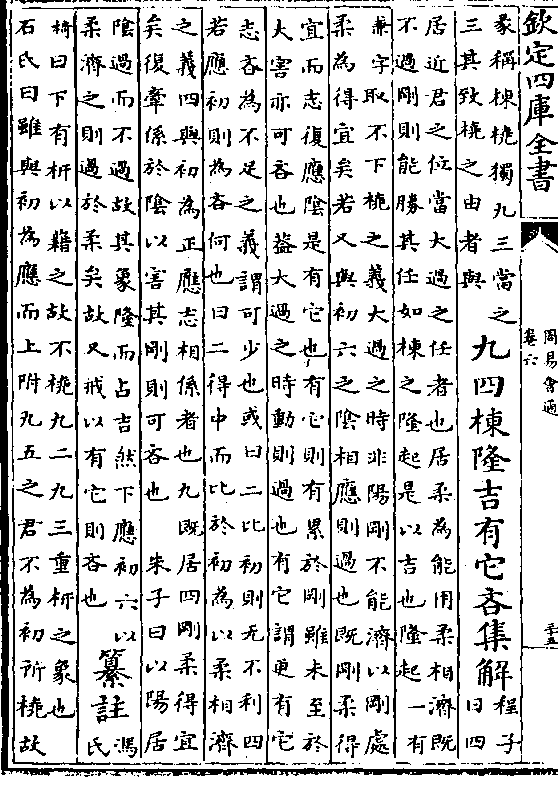 欽定四庫全書
周易會通
卷六
彖稱棟橈獨九三當之
三其致橈之由者與
九四棟隆吉有它吝集解
程子
曰四
居近君之位當大過之任者也居柔為能用柔相濟既
不過剛則能勝其任如棟之隆起是以吉也隆起一有
兼字取不下橈之義大過之時非陽剛不能濟以剛處
柔為得宜矣若又與初六之陰相應則過也既剛柔得
宜而志復應陰是有它也有它則有累於剛雖未至於
大害亦可吝也蓋大過之時動則過也有它謂更有它
志吝為不足之義謂可少也或曰二比初則无不利四
若應初則為吝何也曰二得中而比於初為以柔相濟
之義四與初為正應志相係者也九既居四剛柔得宜
矣復牽係於陰以害其剛則可吝也　朱子曰以陽居
陰過而不過故其象隆而占吉然下應初六以
柔濟之則過於柔矣故又戒以有它則吝也
纂註
馮
氏
椅曰下有枅以藉之故不橈九二九三重枅之象也
石氏曰雖與初為應而上附九五之君不為初所橈故